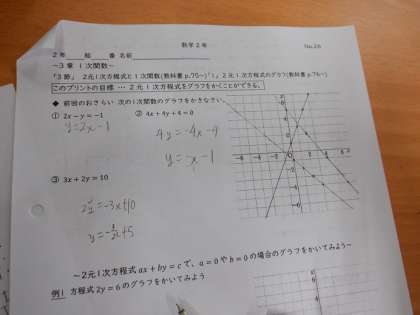 数学2年
No.26
2年 組 番 名前
～3章 1次関数～
「3節 2元1次方程式と1次関数(教科書 p.75～)」「1」2元1次方程式のグラフ(教科書 p.76～)
このプリントの目標 … 2元1次方程式をグラフをかくことができる。
◆ 前回のおさらい 次の1次関数のグラフをかきなさい。
① 2x－y＝－1 ② 4x＋4y＋4＝0
y=2x-1
4y=-4x-4
y=-x-1
③ 3x＋2y＝10
2y=-3x+10
～2元1次方程式 ax＋by＝c で、a＝0や b＝0 の場合のグラフをかいてみよう～
例1 方程式 2y＝6のグラフをかいてみよう